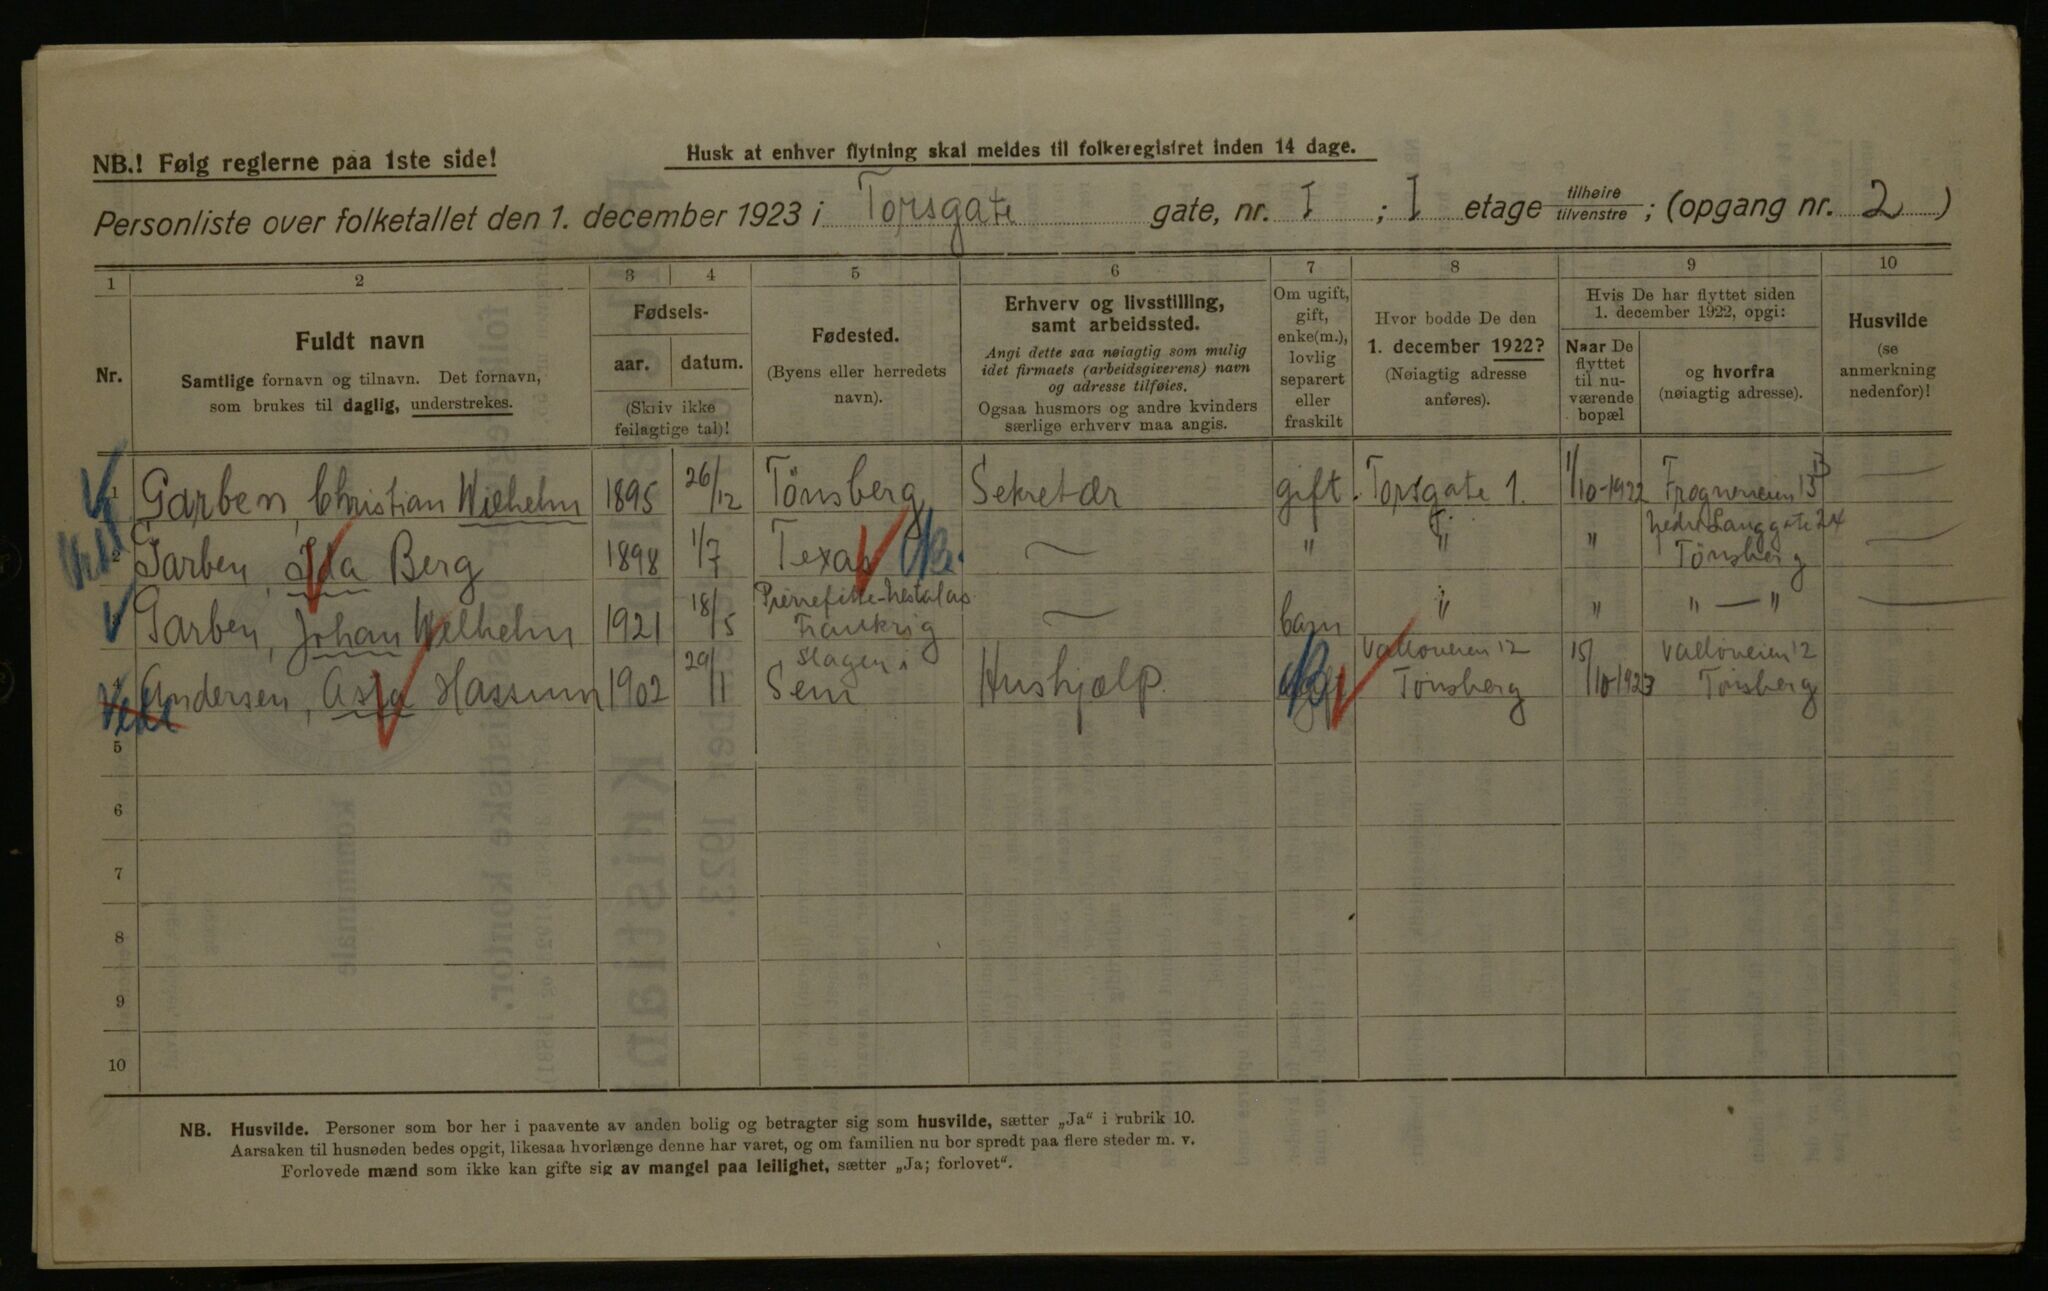 NB.! Følg reglerne paa 1ste side!
Husk at enhver flytning skal meldes til folkeregistret inden 14 dage.
Personliste over folketallet den 1. december 1923 i Torsgate gate, nr. I ; I etage tilhøire tilvenstre ; (opgang nr. 2 )
1 2 3 4 5 6 7 8 9 10
Nr.
Fuldt navn
Samtlige fornavn og tilnavn. Det fornavn,
som brukes til daglig, understrekes.
Fødsels-
aar. datum.
(Skriv ikke
feilagtige tal)!
Fødested.
(Byens eller herredets
navn).
Erhverv og livsstilling,
samt arbeidssted.
Angi dette saa nøiagtig som mulig
idet firmaets (arbeidsgiverens) navn
og adresse tilføies.
Ogsaa husmors og andre kvinders
særlige erhverv maa angis.
Om ugift,
gift,
enke(m.),
lovlig
separert
eller
fraskilt
Hvor bodde De den
1. december 1922?
(Nøiagtig adresse
anføres).
Hvis De har flyttet siden
1. december 1922, opgi:
Naar De
flyttet
til nu-
værende
bopæl
og hvorfra
(nøiagtig adresse).
Husvilde
(se
anmerkning
nedenfor)!
1 Garben, Christian Wilhelm 1895 26/12 Tønsberg Sekretær gift. Torsgate 1. 1/10-1922 Frognerveien 15 —
2 Garben, Ida Berg 1898 1/7 Texas — " " " Nedre Langgate 24 Tönsberg —
Garben, Johan Wilhelm 1921 18/5 Pierrefitte-Nestalas Frankrig — barn " " " — " —
4 Andersen, Asta Hassum 1902 29/1 Slagen i Sem Hushjælp. Valløveien 12 Tønsberg 15/10-1923 Valløveien 12 Tønsberg
5
6
7
8
9
10
NB. Husvilde. Personer som bor her i paavente av anden bolig og betragter sig som husvilde, sætter „Ja“ i rubrik 10.
Aarsaken til husnøden bedes opgit, likesaa hvorlænge denne har varet, og om familien nu bor spredt paa flere steder m. v.
Forlovede mænd som ikke kan gifte sig av mangel paa leilighet, sætter „Ja; forlovet“.